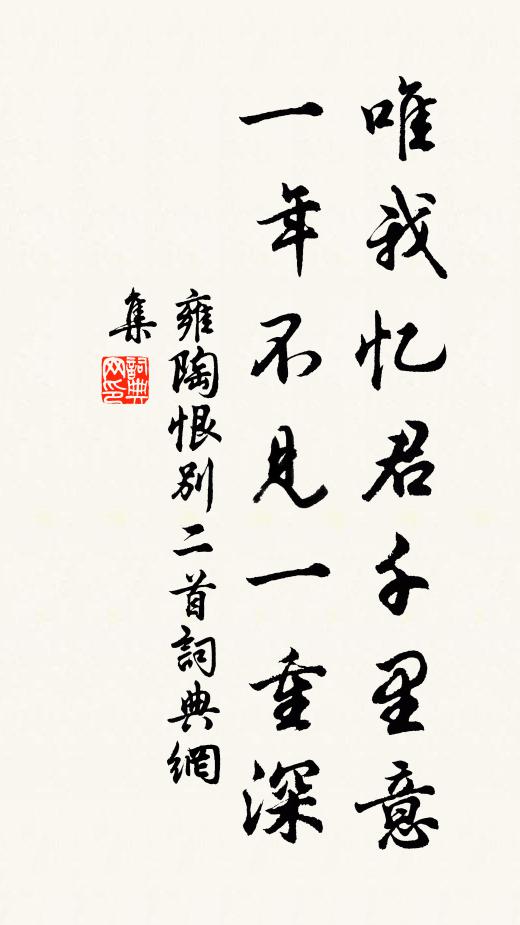 唯我忆君千里意
一年不见一重深
雍陶恨别二首詞典網
集
詞典
网印